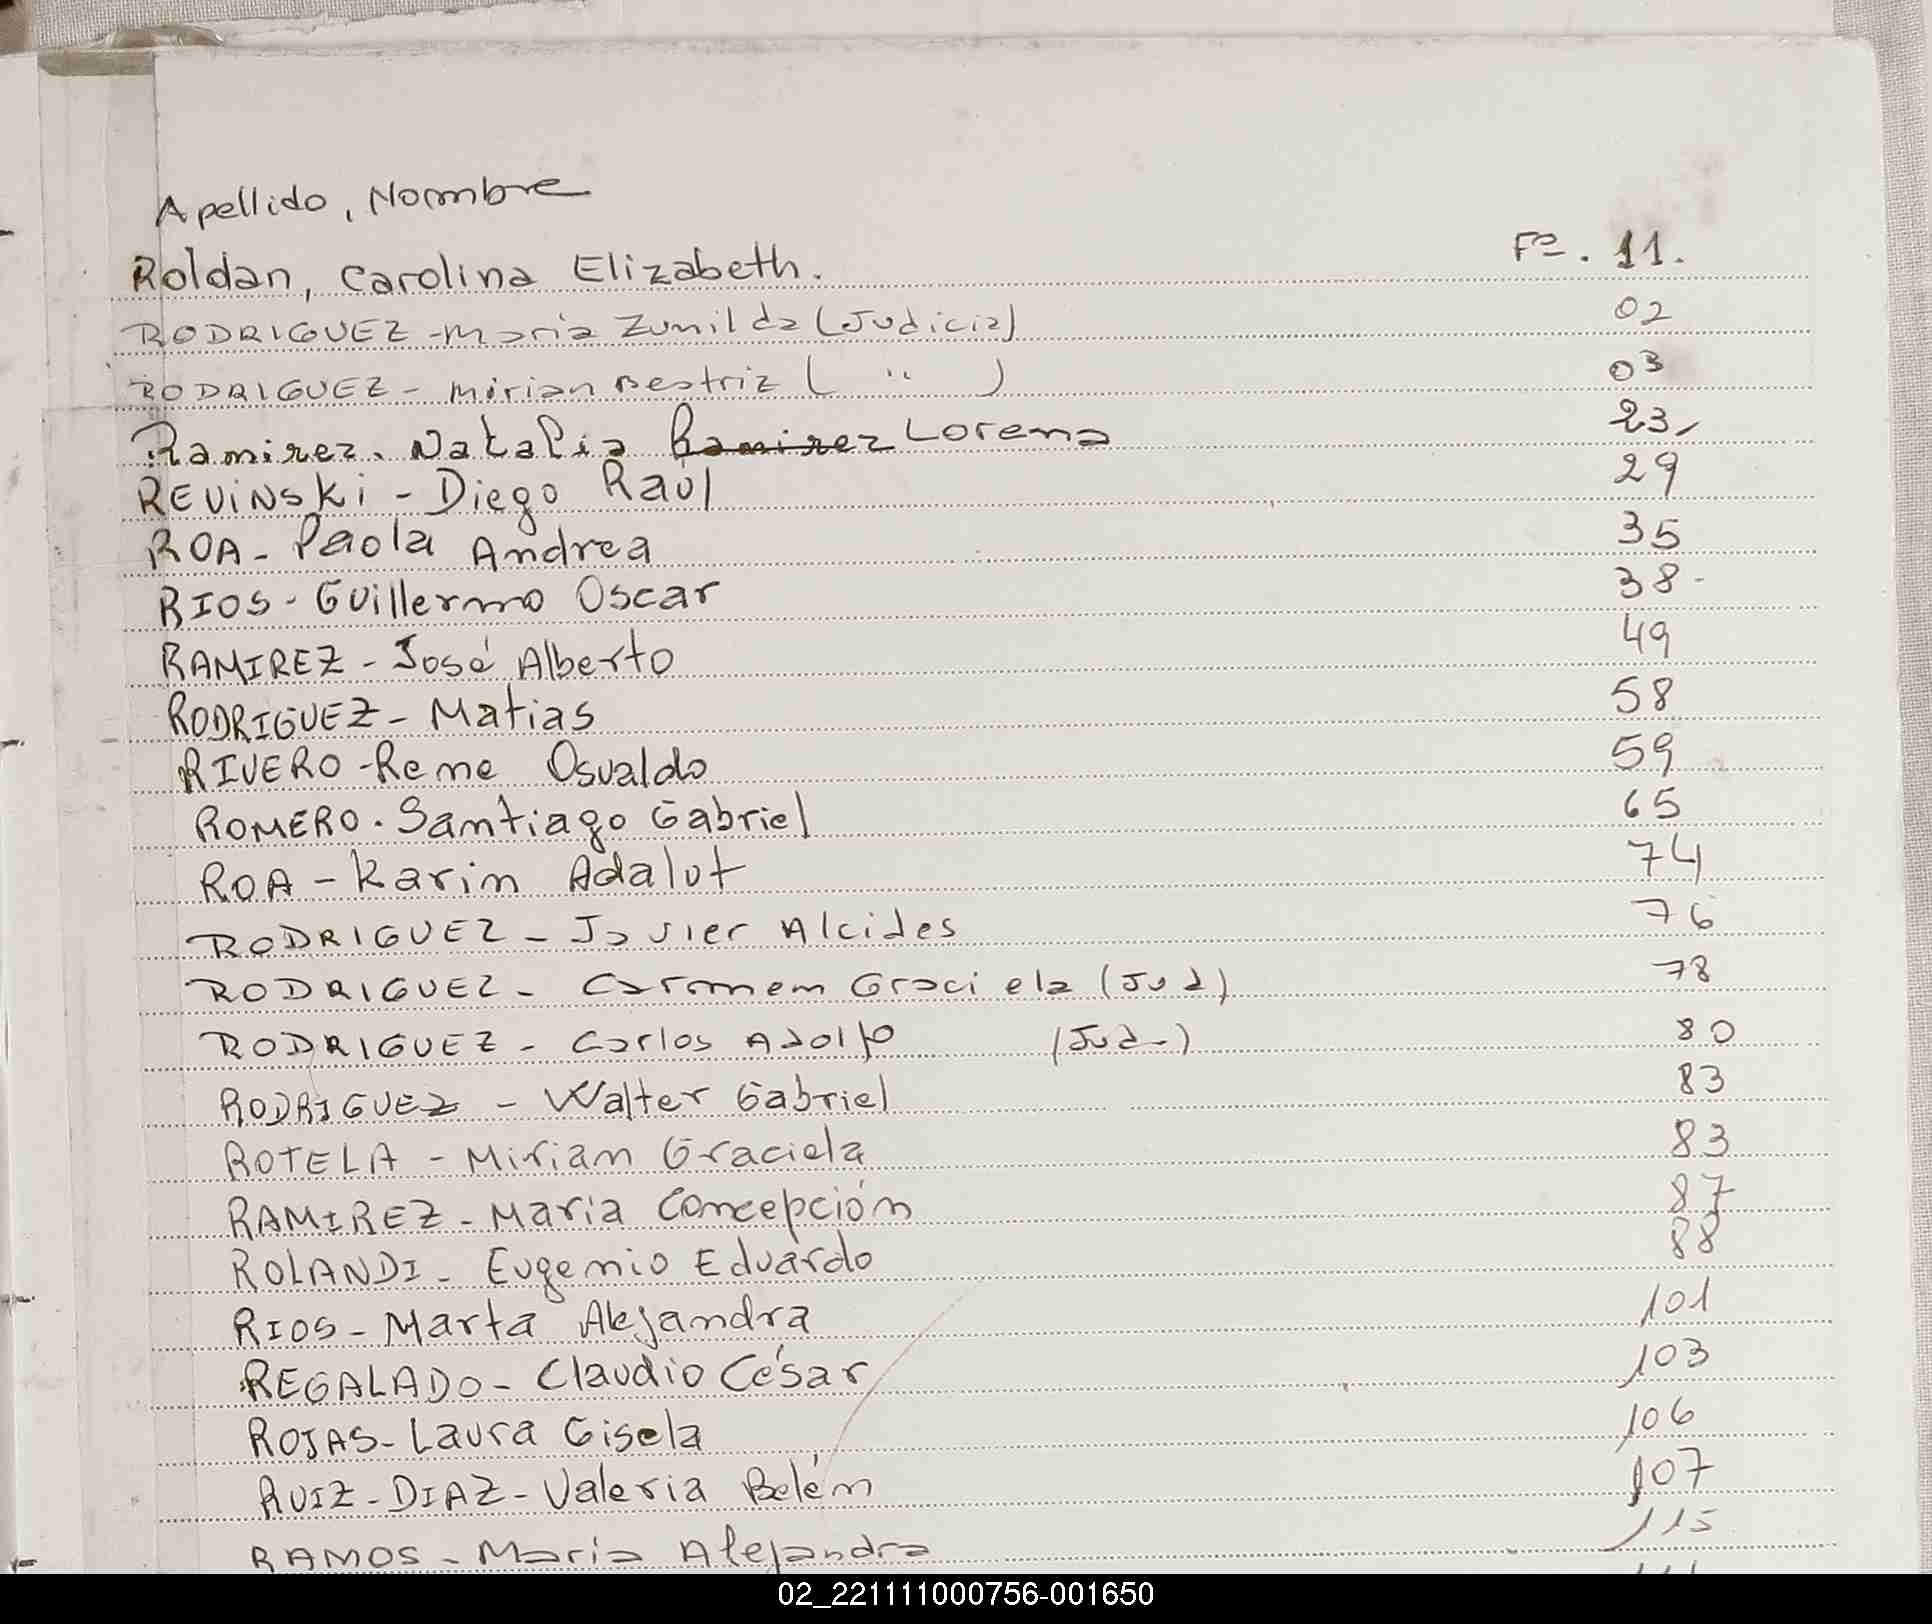 Apellido, Nombre
Roldan, Carolina Elizabeth. Fº. 11.
RODRIGUEZ - Maria Zunilda (Judicia) 02
RODRIGUEZ - Mirian Beatriz ( " ) 03
Ramirez. Natalia Ramirez Lorena 23,
REVINSKI - Diego Raúl 29
ROA - Paola Andrea 35
RIOS - Guillermo Oscar 38-
RAMIREZ - José Alberto 49
RODRIGUEZ - Matias 58
RIVERO - Rene Osvaldo 59
ROMERO. Santiago Gabriel 65
ROA - Karin Adalut 74
RODRIGUEZ - Javier Alcides 76
RODRIGUEZ - Carmen Graciela (Jud) 78
RODRIGUEZ - Carlos Adolfo (Jud-) 80
RODRIGUEZ - Walter Gabriel 83
ROTELA - Miriam Graciela 83
RAMIREZ - Maria Concepción 87
ROLANDI - Eugenio Eduardo 88
RIOS - Marta Alejandra 101
REGALADO - Claudio César 103
ROJAS - Laura Gisela 106
RUIZ - DIAZ - Valeria Belén 107
RAMOS - Maria Alejandra 115
02_221111000756-001650